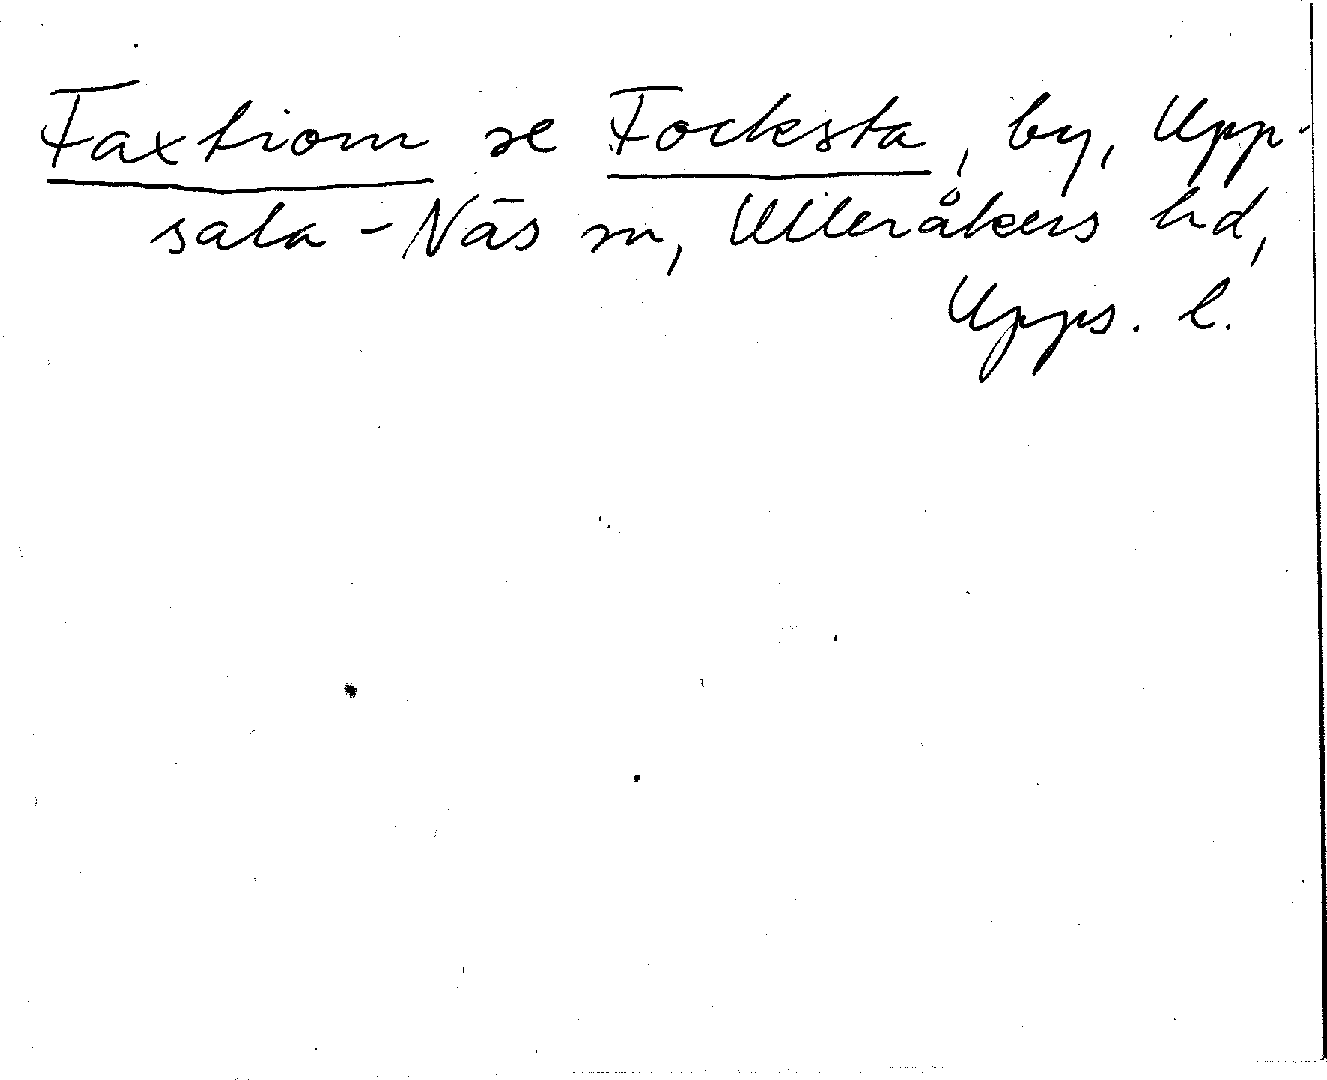 Faxtiom se Focksta, by, Upp-
sala-Näs sn, Ulleråkers hd,
Upps. l.